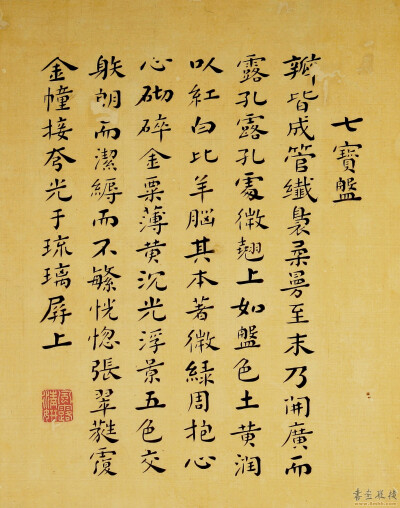 七寶盤
瓣皆成管纖裊柔曼至末乃開廣而
露孔露孔處微翹上如盤色土黃潤
以紅白比羊腦其本著微綠周抱心
心砌碎金粟薄黃沉光浮景五色交
映朗而潔縟而不繁恍惚張翠蕤覆
金幢接夸光于琉璃屏上